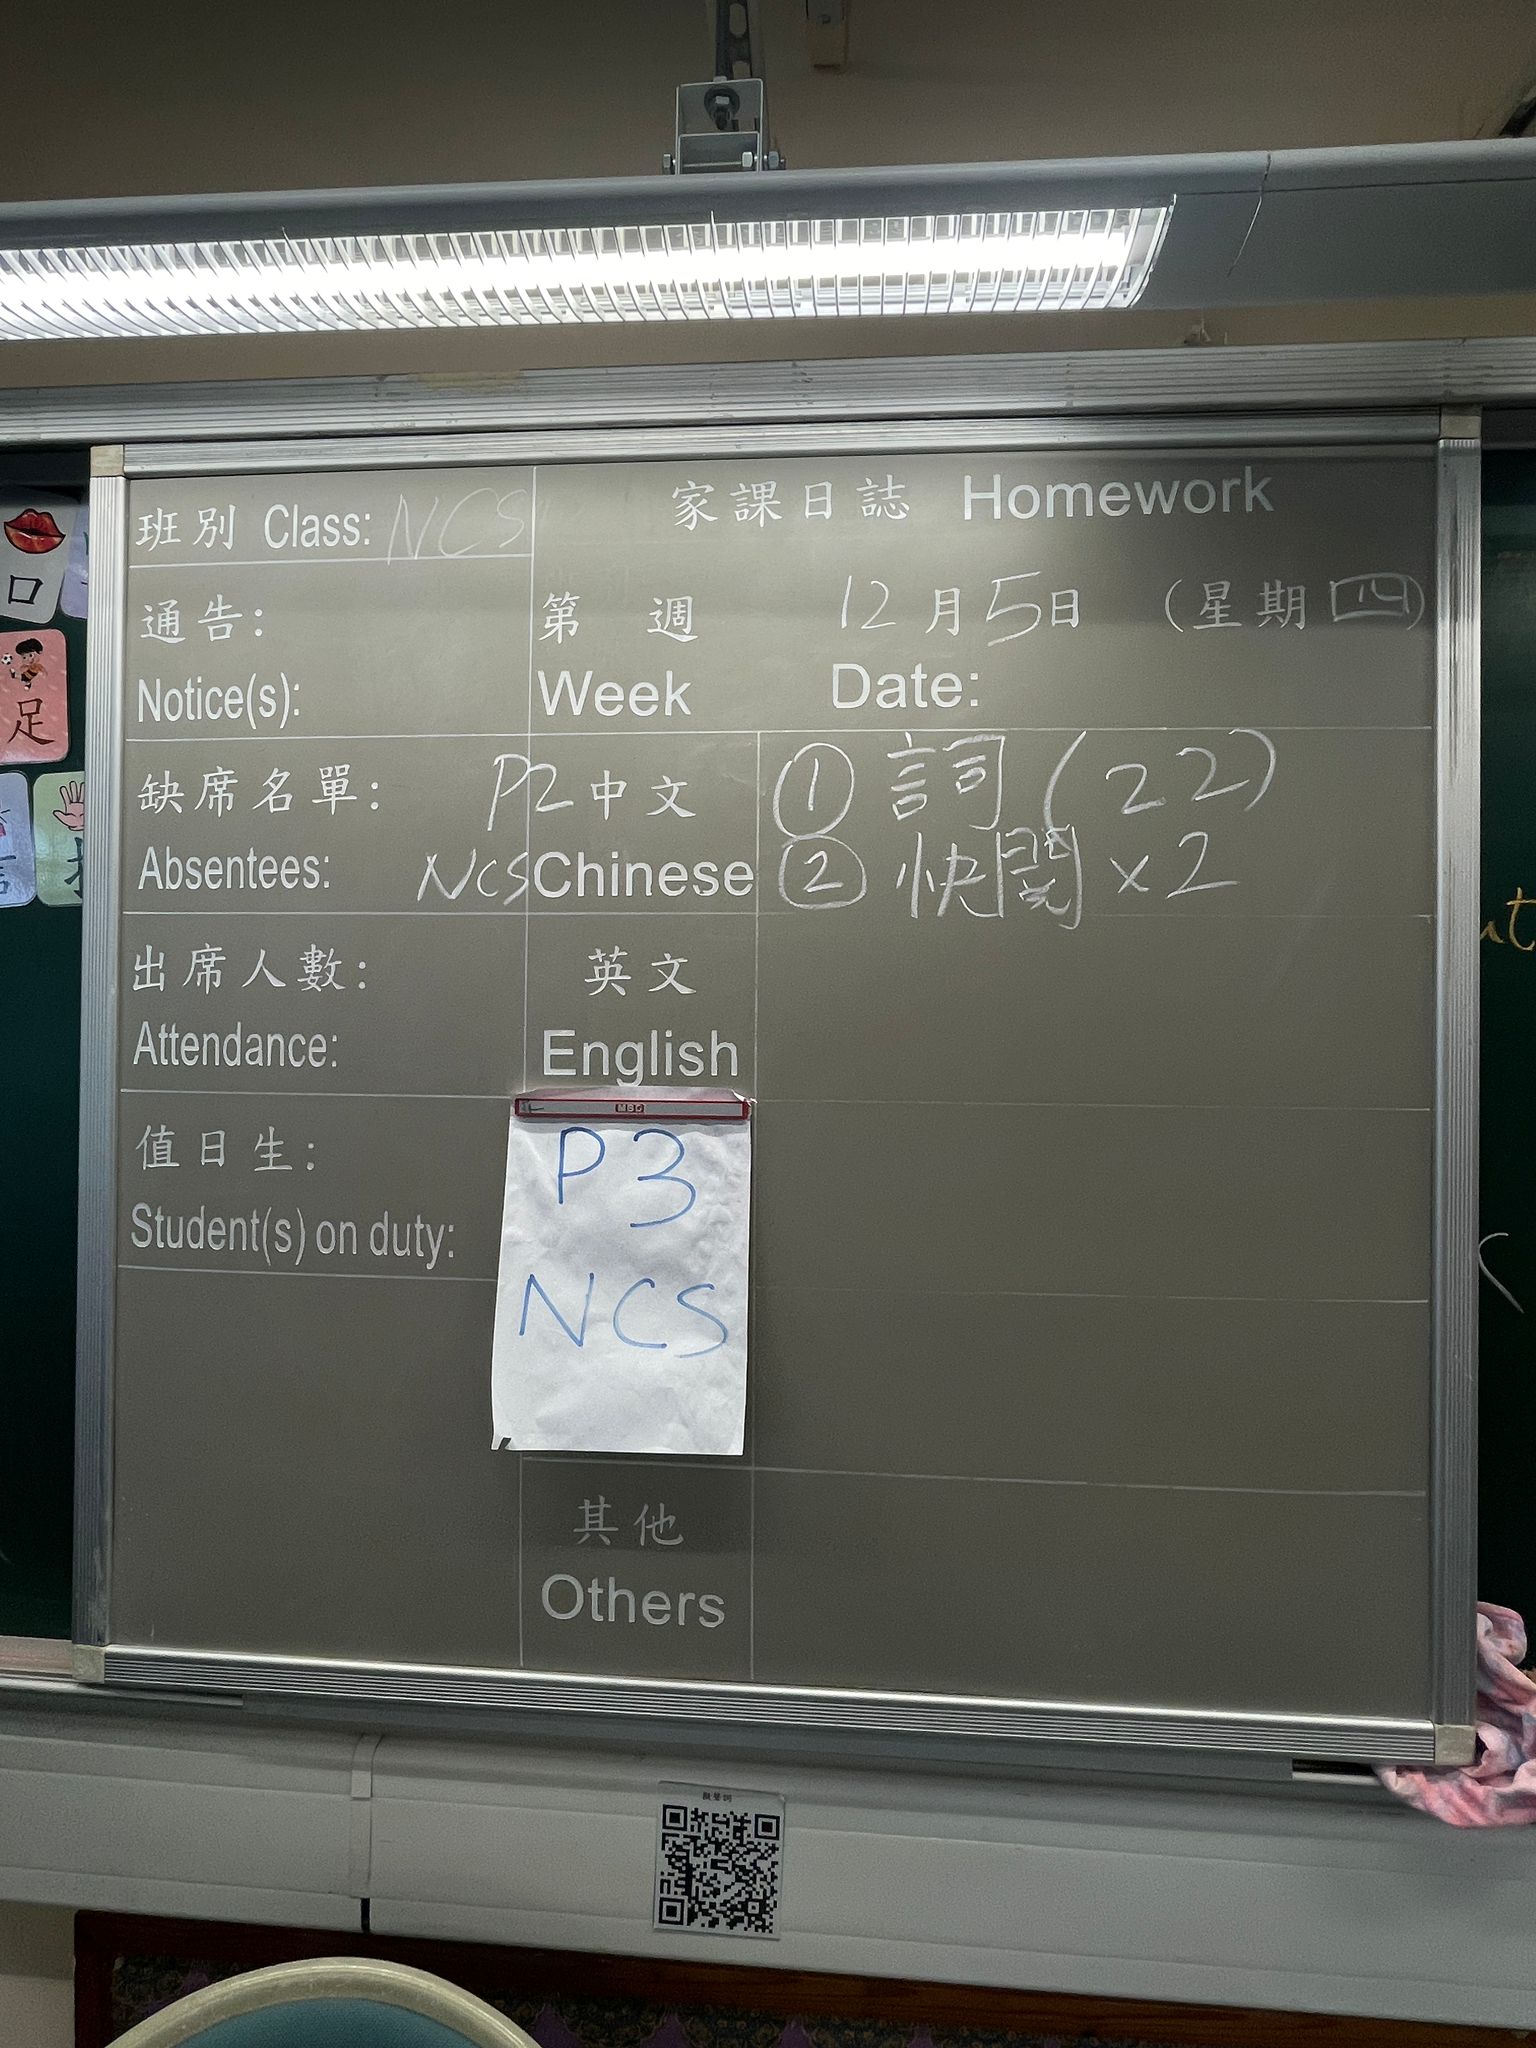 班別 Class: NCS
家課日誌 Homework
通告:
Notice(s):
第 週 12月5日 (星期四)
Week Date:
缺席名單:
Absentees:
P2 中文 ① 詞(22)
NCS Chinese ② 快閱×2
出席人數:
Attendance:
英文
English
值日生:
Student(s) on duty:
P3
NCS
其他
Others
口
足